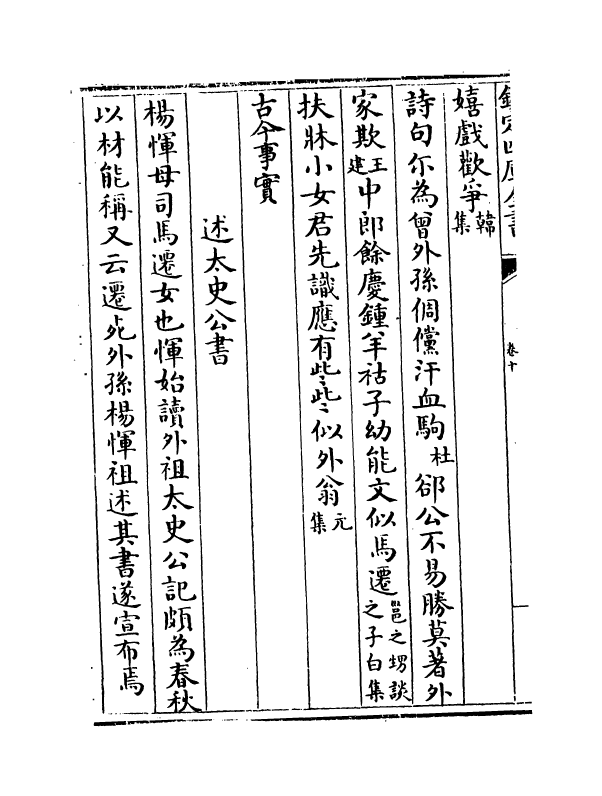 欽定四庫全書
卷十
嬉戲歡爭韓集
詩句尓為曾外孫倜儻汗血駒杜郤公不易勝莫著外
家欺王建中郎餘慶鍾羊祜子幼能文似馬遷邕之甥談之子白集
扶牀小女君先識應有些些似外翁元集
古今事實
述太史公書
楊惲母司馬遷女也惲始讀外祖太史公記頗為春秋
以材能稱又云遷死外孫楊惲祖述其書遂宣布焉